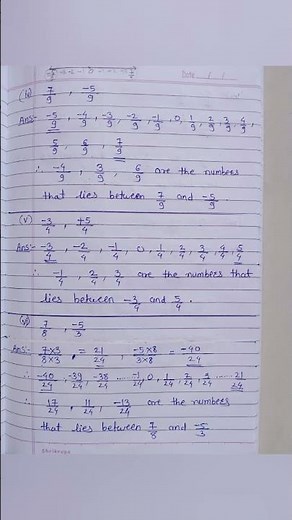 Date / /
(iv) 7/9 , -5/9
Ans:- -5/9, -4/9, -3/9, -2/9, -1/9, 0, 1/9, 2/9, 3/9, 4/9,
5/9, 6/9, 7/9
∴ -4/9, 3/9, 6/9 are the numbers
that lies between 7/9 and -5/9.
(v) -3/4, +5/4
Ans:- -3/4, -2/4, -1/4, 0, 1/4, 2/4, 3/4, 4/4, 5/4
∴ -1/4, 2/4, 3/4 are the numbers that
lies between -3/4 and 5/4.
(vi) 7/8, -5/3
Ans:- 7×3/8×3 = 21/24, -5×8/3×8 = -40/24
∴ -40/24, -39/24, -38/24 ..... -1/24, 0, 1/24, 2/24, ..... 21/24
∴ 17/24, 11/24, -13/24 are the numbers
that lies between 7/8 and -5/3